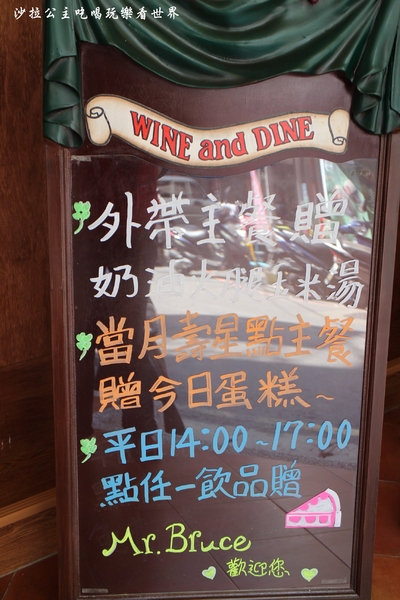 沙拉公主吃喝玩樂看世界
WINE and DINE
外帶主餐贈
奶油火腿玉米湯
當月壽星點主餐
贈今日蛋糕~
平日14:00~17:00
點任一飲品贈
Mr. Bruce
歡迎您